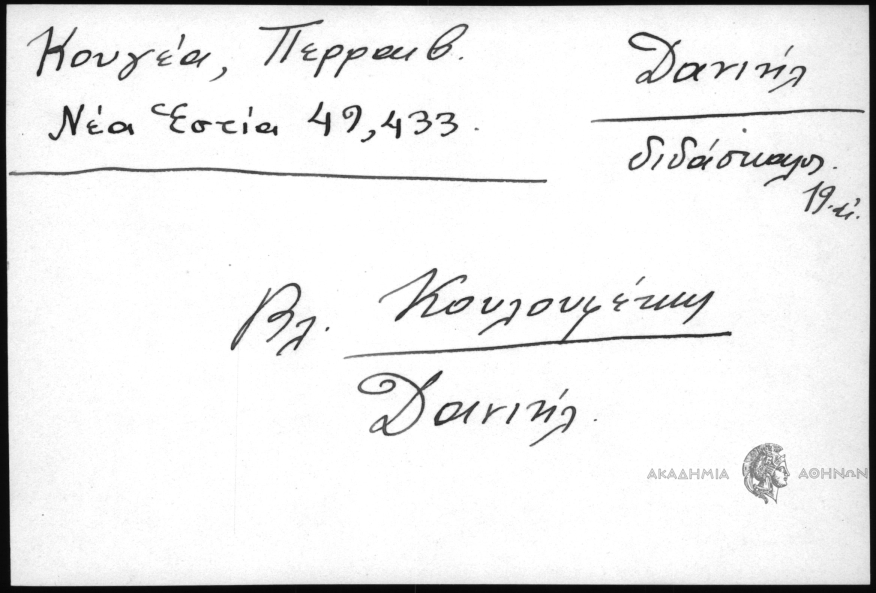 Κουγέα, Περραιβ.
Νέα Εστία 49,433.
Δανιήλ
διδάσκαλος.
19. αἰ.
Βλ.
Δανιήλ.
ΑΚΑΔΗΜΙΑ ΑΘΗΝΩΝ